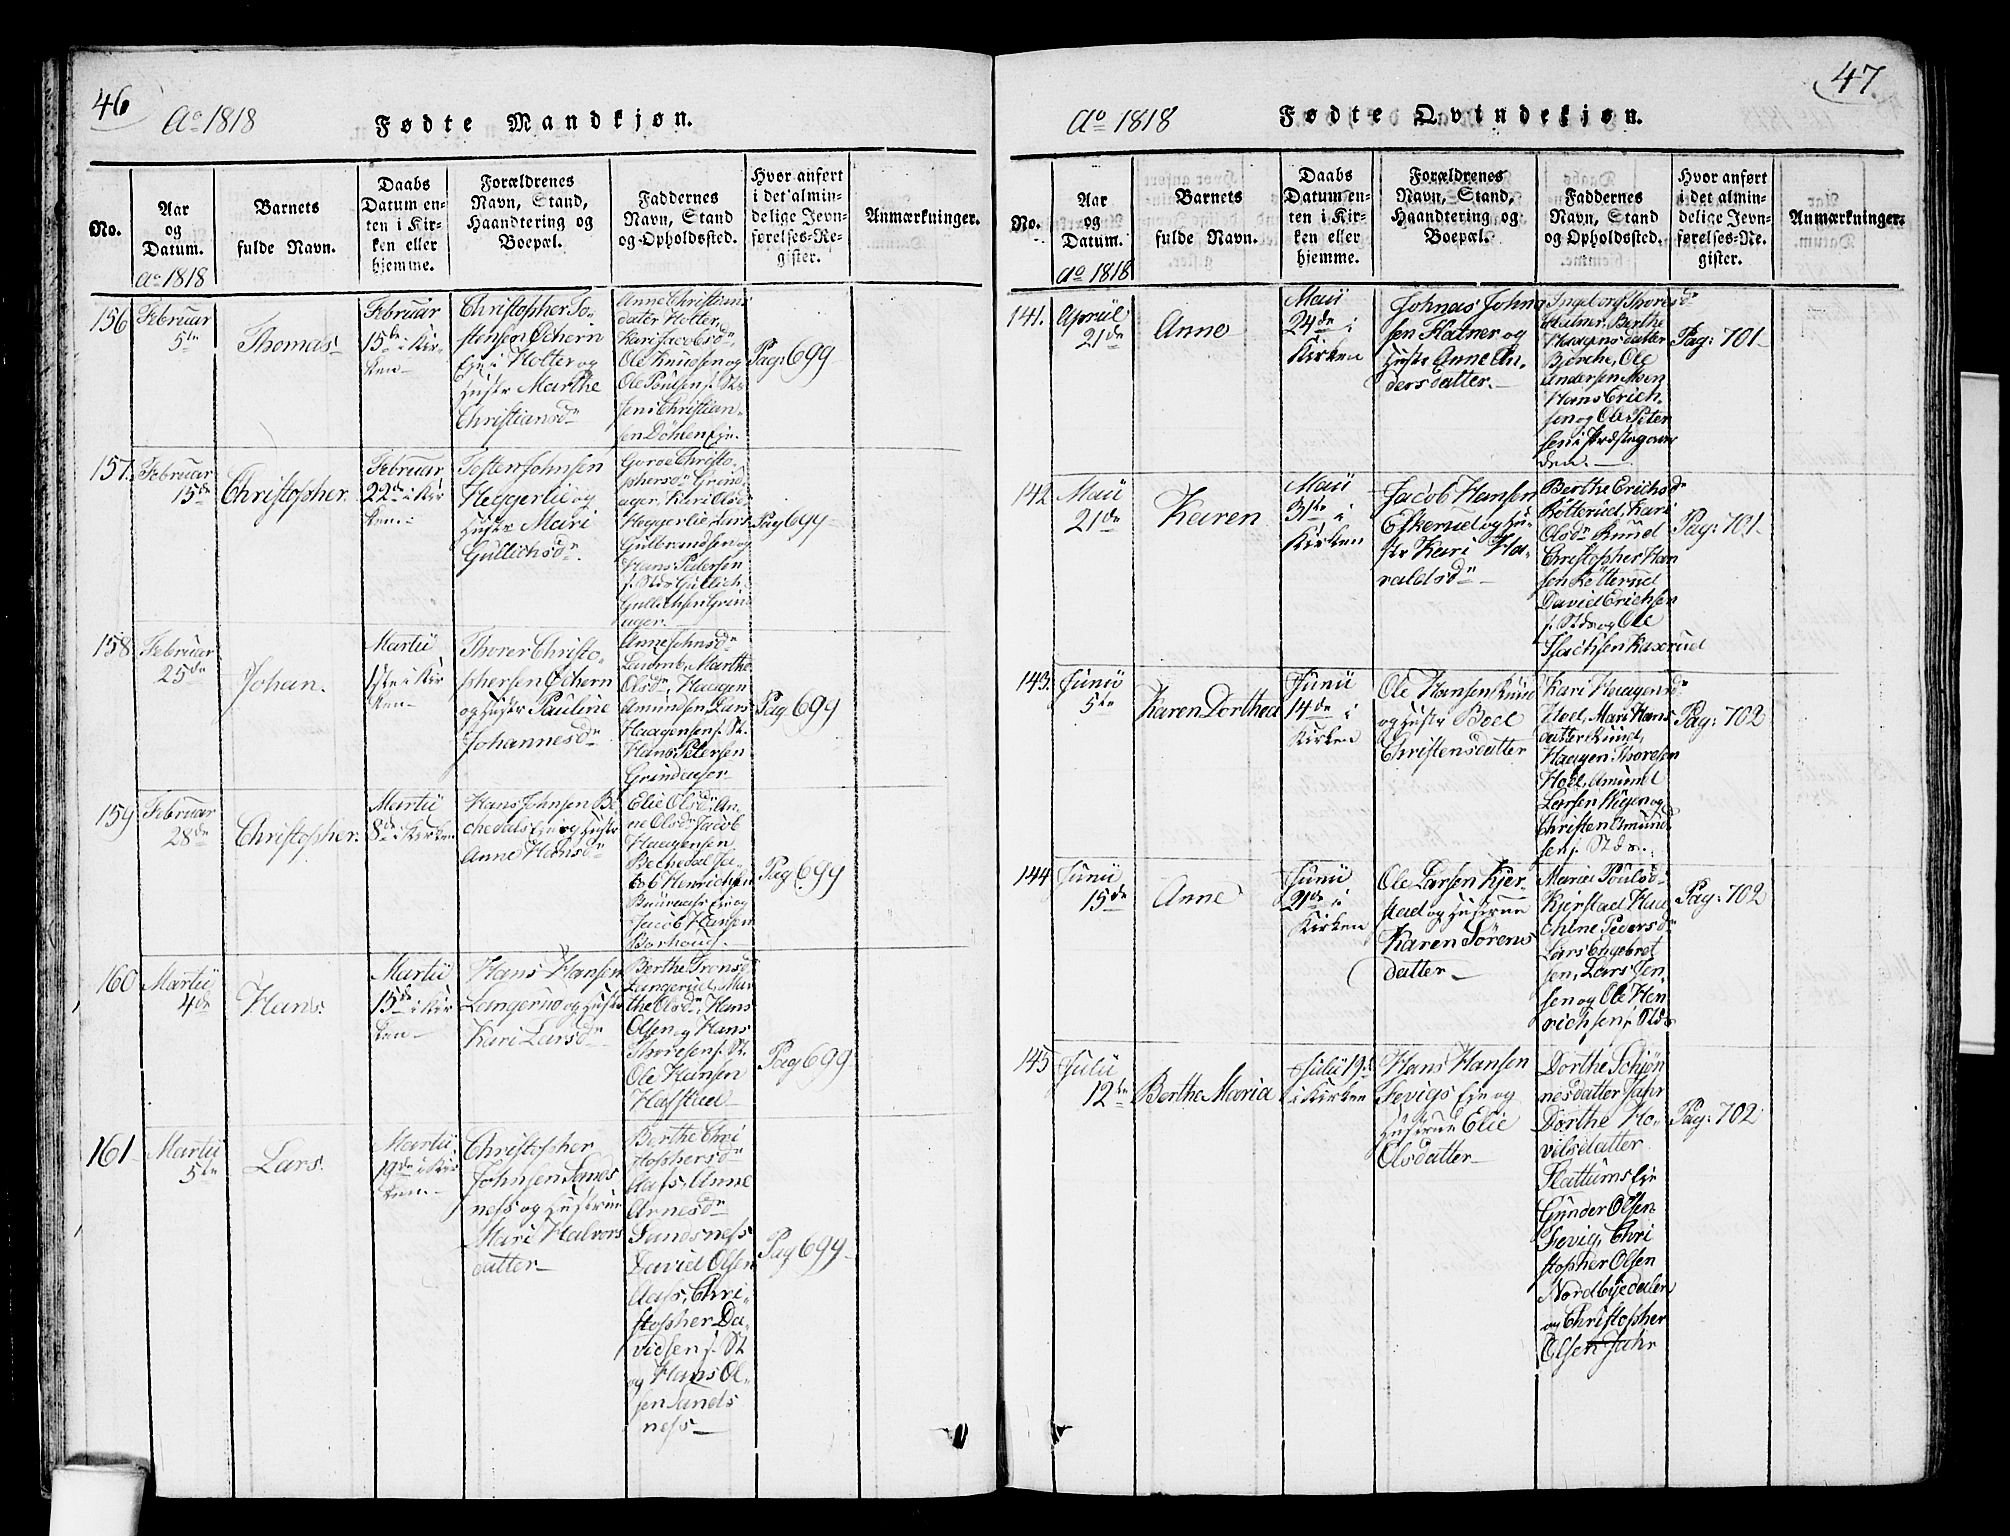 46
Ao 1818
Fødte Mandkjøn.
No.
Aar
og
Datum.
Ao 1818
Barnets
fulde Navn.
Daabs
Datum en-
ten i Kir-
ken eller
hjemme.
Forældrenes
Navn, Stand,
Haandtering og
Boepæl.
Faddernes
Navn, Stand
og Opholdssted.
Hvor anført
i det almin-
delige Jevn-
førelses-Re-
gister.
Anmærkninger.
156
Februar
5te
Thomas
Februar
15de i Kir-
ken
Christopher To-
stensen Ochern
Eje i Holter og
Hustr Marthe
Christiansdr
Anne Christians
dater Holter,
Kari Jacobsdr
Ole Knudsen og
Ole Poulsen j. St.
Jens Christian-
sen Döhlen Eje.
Pag: 699
157.
Februar
15de
Christopher.
Februar
22de i Kir
ken.
Tosten Johnsen
Heggerlie og
Hustr Mari
Gullichsdr
Goroe Christo-
phersdr Grind
ager, Kari Olsdr
Heggerlie Lars
Gulbrandsen og
Hans Pedersen
j. Stds Gullich
Gullichsen Grind
ager.
Pag 699
158
Februar
25de
Johan.
Martii
1ste i Kir
ken
Thorer Christo-
phersen Ochern
og Hustr Pauline
Johannesdr
Anne Johnsdr
Lamb, Marthe
Olsdr, Haagen
Amundsen, Lars
Haagensen j. St.
Hans Petersen
Grindager
Pag 699
159
Februar
28de
Christopher.
Martii
8de i Kirken
Hans Johnsen Be
chedals Eje og Hustr
Anne Hansdr
Elie Olsdr, An-
ne Olsdr Jacob
Haagensen
Bechedal Ja-
cob Henrichsen
Eje og
Jacob Hansen
Borhaug.
Pag 699
160
Martii
4de
Hans.
Martii
15de i Kir
ken
Hans Hansen
Langerud og Hustr
Kari Larsdr
Berthe Tronsdr
Langerud, Mar
the Olsdr, Hans
Olsen og Hans
Thoresen j. St.
Ole Hansen
Hafstad
Pag 699
161
Martii
5te
Lars.
Martii
19de i Kir
ken.
Christopher
Johnsen Sands
ness og Hustrue
Mari Halvors
datter
Berthe Chri
stophersdr
Aafs, Anne
Arnesdr
Sandsness
David Olsen
Aafs, Chri-
stopher Da-
vidsen j. St
og Hans Ol-
sen Sands
ness
Pag 699
47.
Ao 1818
Fødte Qvindekjøn.
No.
Aar
og
Datum.
Ao 1818
Barnets
fulde Navn.
Daabs
Datum en-
ten i Kir-
ken eller
hjemme.
Forældrenes
Navn, Stand,
Haandtering og
Boepæl.
Faddernes
Navn, Stand
og Opholdssted.
Hvor anført
i det almin-
delige Jevn-
førelses-Re-
gister.
Anmærkninger.
141.
Apriil
21de
Anne
Maii
24de i
Kirken
Johnas Johna
sen Flatner og
Hustr Anne An-
dersdatter.
Ingeborg Thoresdr
Flatner, Berthe
Haagensdatter
Bjerche, Ole
Andersen Moen
Hans Erich-
sen og Ole Peter
sen i Præstegaar
den.
Pag: 701
142
Maii
21de
Karen
Maii
31te i
Kirken
Jacob Hansen
Eskerud og Hu-
str Kari Ha-
raldsdr
Berthe Erichsdr
Bötterud, Kari
Olsdr Ruud
Christopher Han
sen Lötterud
David Erichsen
j. Stds og Ole
Isachsen Kaxerud
Pag: 701
143.
Junii
5te
Karen Dorthea
Junii
14de i
Kirken
Ole Hansen Ruud
og Hustr Boel
Christensdatter
Kari Haagensdr
Hoel, Mari Hans
datter Ruud,
Haagen Thoresen
Hoel, Amund
Larsen Hagen og
Christen Amund
sen j. Stds.
Pag: 702
144
Junii
15de
Anne
Junii
21de i
Kirken
Ole Larsen Kjer-
stad og Hustrue
Karen Sörens
datter
Maria Poulsdr
Kjerstad Kaa
Pedersdr
Lars Engebret
sen, Lars Jen
sen og Ole Hen
richsen j. Stds
Pag: 702
145
Julii
12te
Berthe Maria
Julii 19de
i Kirken
Hans Hansen
Fevigs Eje og
Hustrue Elie
Olsdatter
Dorthe Schjøn
nesdatter Jahr
Dorthe Ho-
velsdatter
Flattums Eje
Günder Olsen
Fevig, Chri
stopher Olsen
Nordbyedalen
og Christopher
Olsen Jahr
Pag: 702